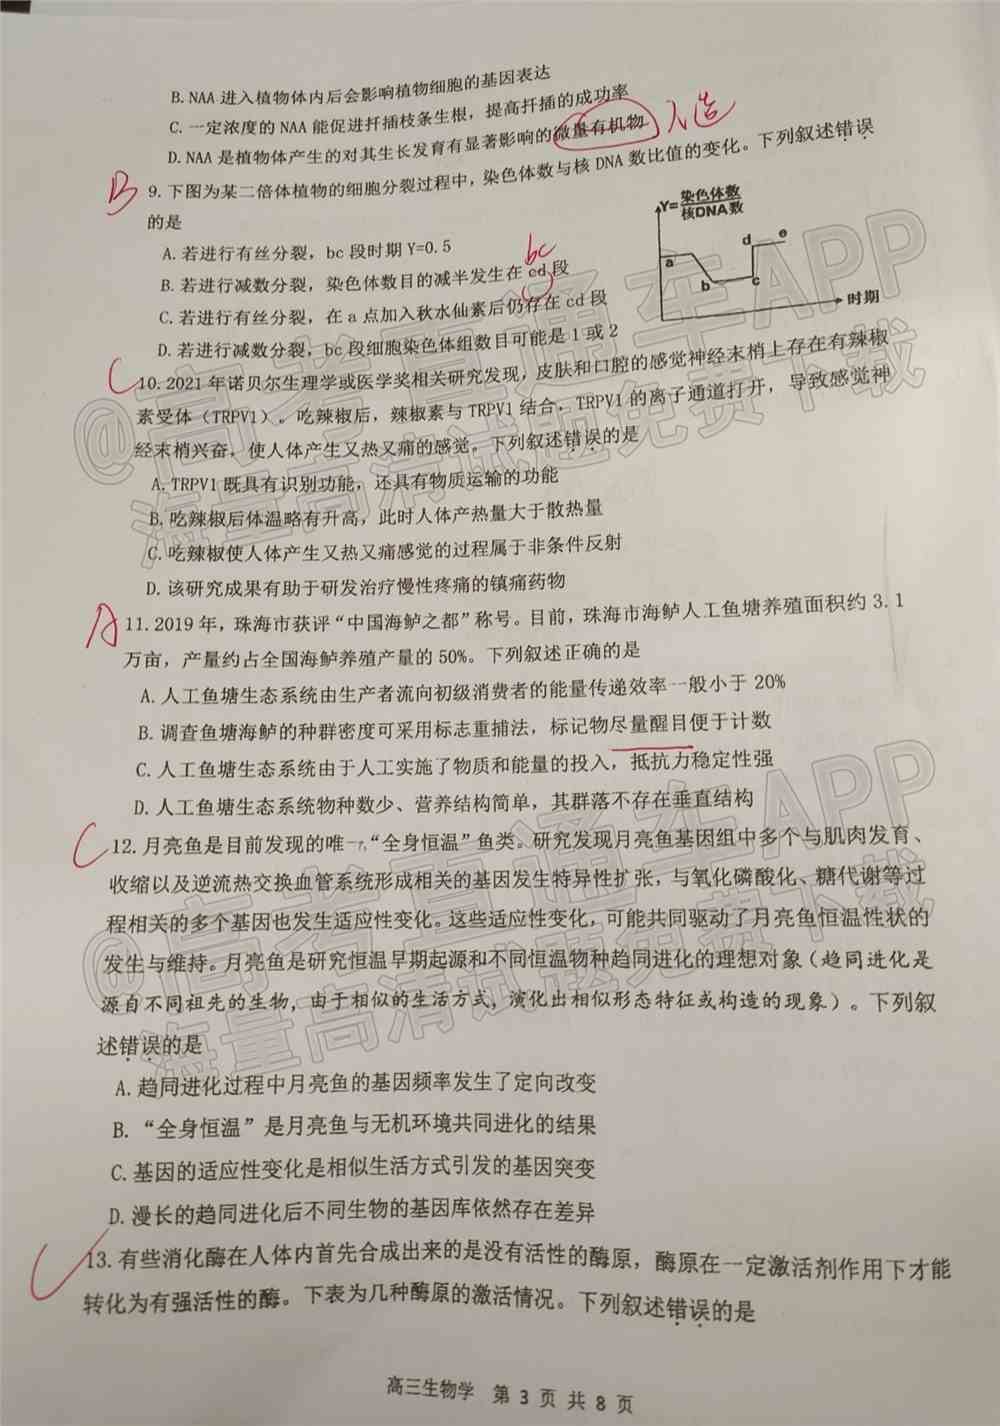 B. NAA 进入植物体内后会影响植物细胞的基因表达
C. 一定浓度的 NAA 能促进扦插枝条生根，提高扦插的成功率
D. NAA 是植物体产生的对其生长发育有显著影响的微量有机物 人造
B 9. 下图为某二倍体植物的细胞分裂过程中，染色体数与核 DNA 数比值的变化。下列叙述错误
的是
Y=染色体数
核DNA数
a
b
c
d
e
时期
A. 若进行有丝分裂，bc 段时期 Y=0.5
bc
B. 若进行减数分裂，染色体数目的减半发生在 cd 段
C. 若进行有丝分裂，在 a 点加入秋水仙素后仍存在 cd 段
D. 若进行减数分裂，bc 段细胞染色体组数目可能是 1 或 2
C 10. 2021 年诺贝尔生理学或医学奖相关研究发现，皮肤和口腔的感觉神经末梢上存在有辣椒
素受体（TRPV1）。吃辣椒后，辣椒素与 TRPV1 结合，TRPV1 的离子通道打开，导致感觉神
经末梢兴奋，使人体产生又热又痛的感觉。下列叙述错误的是
A. TRPV1 既具有识别功能，还具有物质运输的功能
B. 吃辣椒后体温略有升高，此时人体产热量大于散热量
C. 吃辣椒使人体产生又热又痛感觉的过程属于非条件反射
D. 该研究成果有助于研发治疗慢性疼痛的镇痛药物
A 11. 2019 年，珠海市获评“中国海鲈之都”称号。目前，珠海市海鲈人工鱼塘养殖面积约 3.1
万亩，产量约占全国海鲈养殖产量的 50%。下列叙述正确的是
A. 人工鱼塘生态系统由生产者流向初级消费者的能量传递效率一般小于 20%
B. 调查鱼塘海鲈的种群密度可采用标志重捕法，标记物尽量醒目便于计数
C. 人工鱼塘生态系统由于人工实施了物质和能量的投入，抵抗力稳定性强
D. 人工鱼塘生态系统物种数少、营养结构简单，其群落不存在垂直结构
C 12. 月亮鱼是目前发现的唯一“全身恒温”鱼类。研究发现月亮鱼基因组中多个与肌肉发育、
收缩以及逆流热交换血管系统形成相关的基因发生特异性扩张，与氧化磷酸化、糖代谢等过
程相关的多个基因也发生适应性变化。这些适应性变化，可能共同驱动了月亮鱼恒温性状的
发生与维持。月亮鱼是研究恒温早期起源和不同恒温物种趋同进化的理想对象（趋同进化是
源自不同祖先的生物，由于相似的生活方式，演化出相似形态特征或构造的现象）。下列叙
述错误的是
A. 趋同进化过程中月亮鱼的基因频率发生了定向改变
B. “全身恒温”是月亮鱼与无机环境共同进化的结果
C. 基因的适应性变化是相似生活方式引发的基因突变
D. 漫长的趋同进化后不同生物的基因库依然存在差异
C 13. 有些消化酶在人体内首先合成出来的是没有活性的酶原，酶原在一定激活剂作用下才能
转化为有强活性的酶。下表为几种酶原的激活情况。下列叙述错误的是
高三生物学 第 3 页 共 8 页
@高考直通车APP
海量高清试题免费下载
@高考直通车APP
海量高清试题免费下载